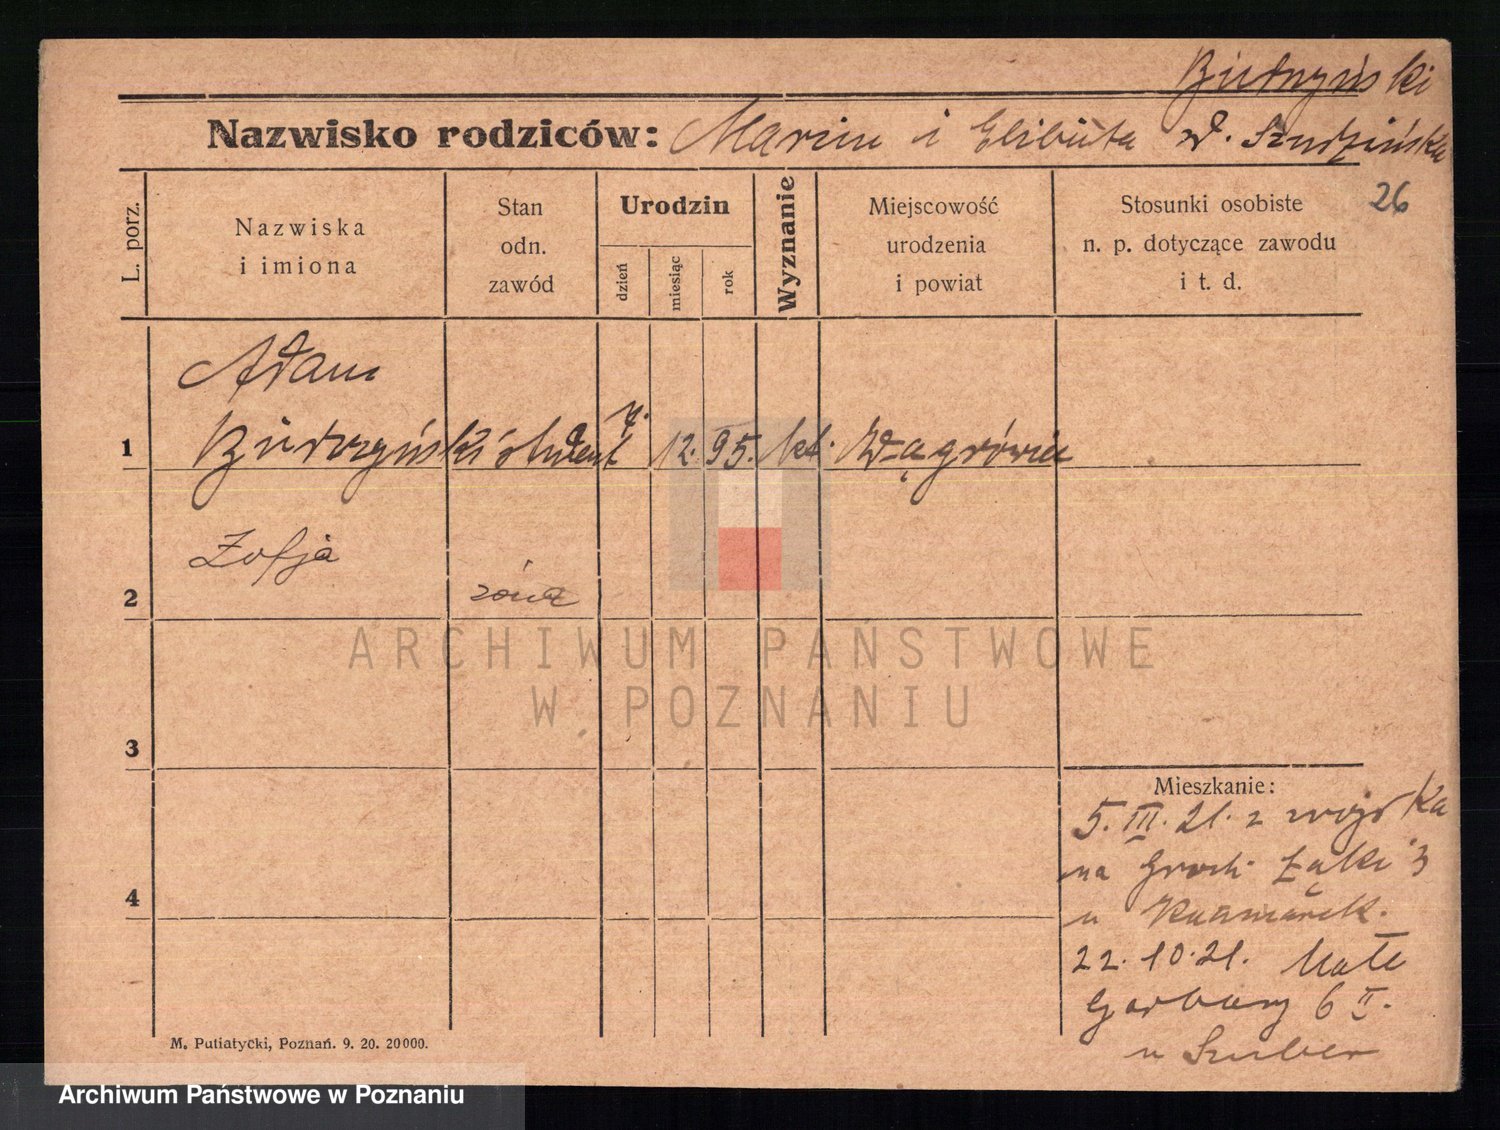 Nazwisko rodziców: Marian i Elżbieta d. Szudzińska
26
L. porz.
Nazwiska
i imiona
Stan
odn.
zawód
Urodzin
dzień
miesiąc
rok
Wyznanie
Miejscowość
urodzenia
i powiat
Stosunki osobiste
n. p. dotyczące zawodu
i t. d.
Adam
1 student 12. 95. kat. Wągrówiec
Zofja
2 żona
3
4
Mieszkanie:
5. III. 21. z wojska
na Groch. Łąki 3
u
22. 10. 21. Małe
Garbary 6 II.
u Szuber
M. Putiatycki, Poznań. 9. 20. 20000.
ARCHIWUM PAŃSTWOWE
W POZNANIU
Archiwum Państwowe w Poznaniu